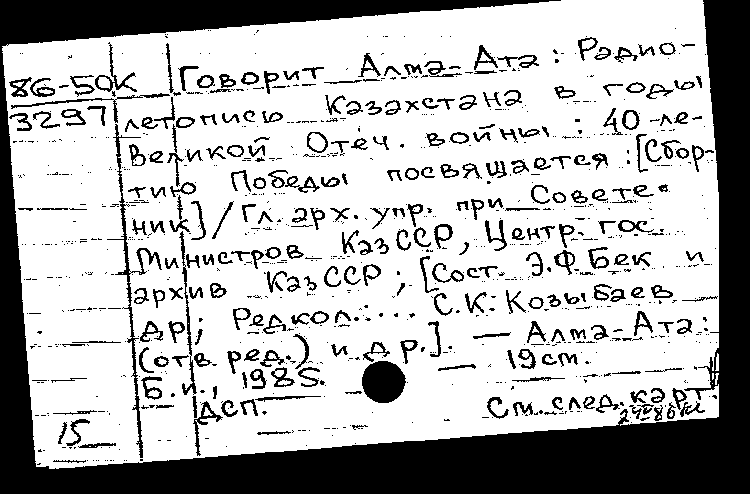 86-50К Говорит Алма-Ата : Радио-
3297 летопись Казахстана в годы
Великой Отеч. войны : 40-ле-
тию Победы посвящается : [Сбор-
ник] / Гл. арх. упр. при Совете
Министров КазССР, Центр. гос.
архив КазССР ; [Сост. Э.Ф. Бек и
др ; Редкол.: ... С.К. Козыбаев
(отв. ред.) и др.]. — Алма-Ата :
Б.и., 1985. — 19 см.
ДСП.
См. след. карт.
15